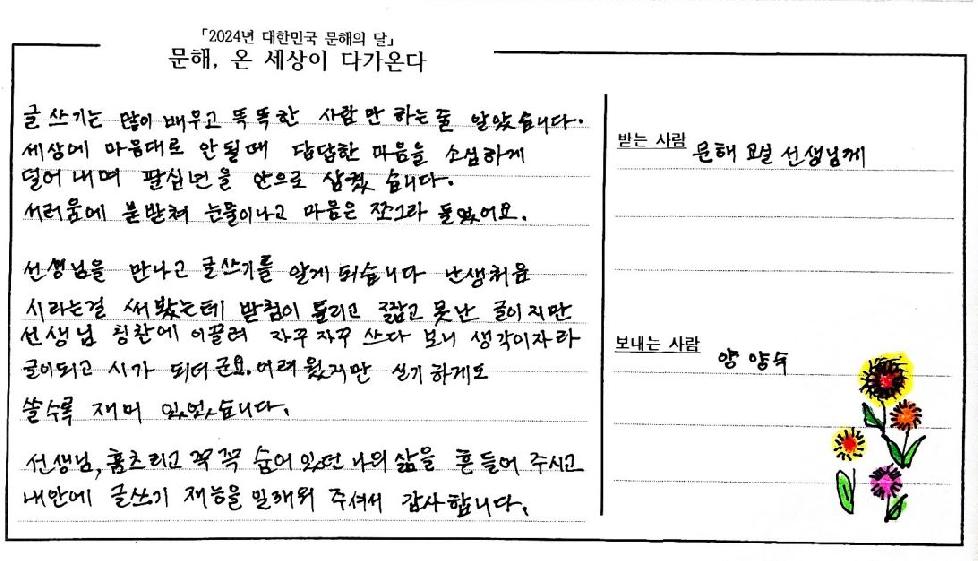 「2024년 대한민국 문해의 달」
문해, 온 세상이 다가온다
글쓰기는 많이 배우고 똑똑한 사람만 하는줄 알았습니다.
세상에 마음대로 안될때 답답한 마음을 소심하게
덜어내며 팔십년을 안으로 삼켰습니다.
서러움에 북받쳐 눈물이나고 마음은 쪼그라 들었어요.
선생님을 만나고 글쓰기를 알게 되습니다 난생처음
시라는걸 써봤는데 받침이 틀리고 짧고 못난 글이지만
선생님 칭찬에 이끌려 자꾸자꾸 쓰다 보니 생각이자라
글이되고 시가 되더군요. 어려웠지만 신기하게도
쓸수록 재미 있었습니다.
선생님, 움츠리고 꼭꼭 숨어있던 나의 삶을 흔들어 주시고
내안에 글쓰기 재능을 일깨워 주셔서 감사합니다.
받는 사람 문해 교실 선생님께
보내는 사람 양양숙